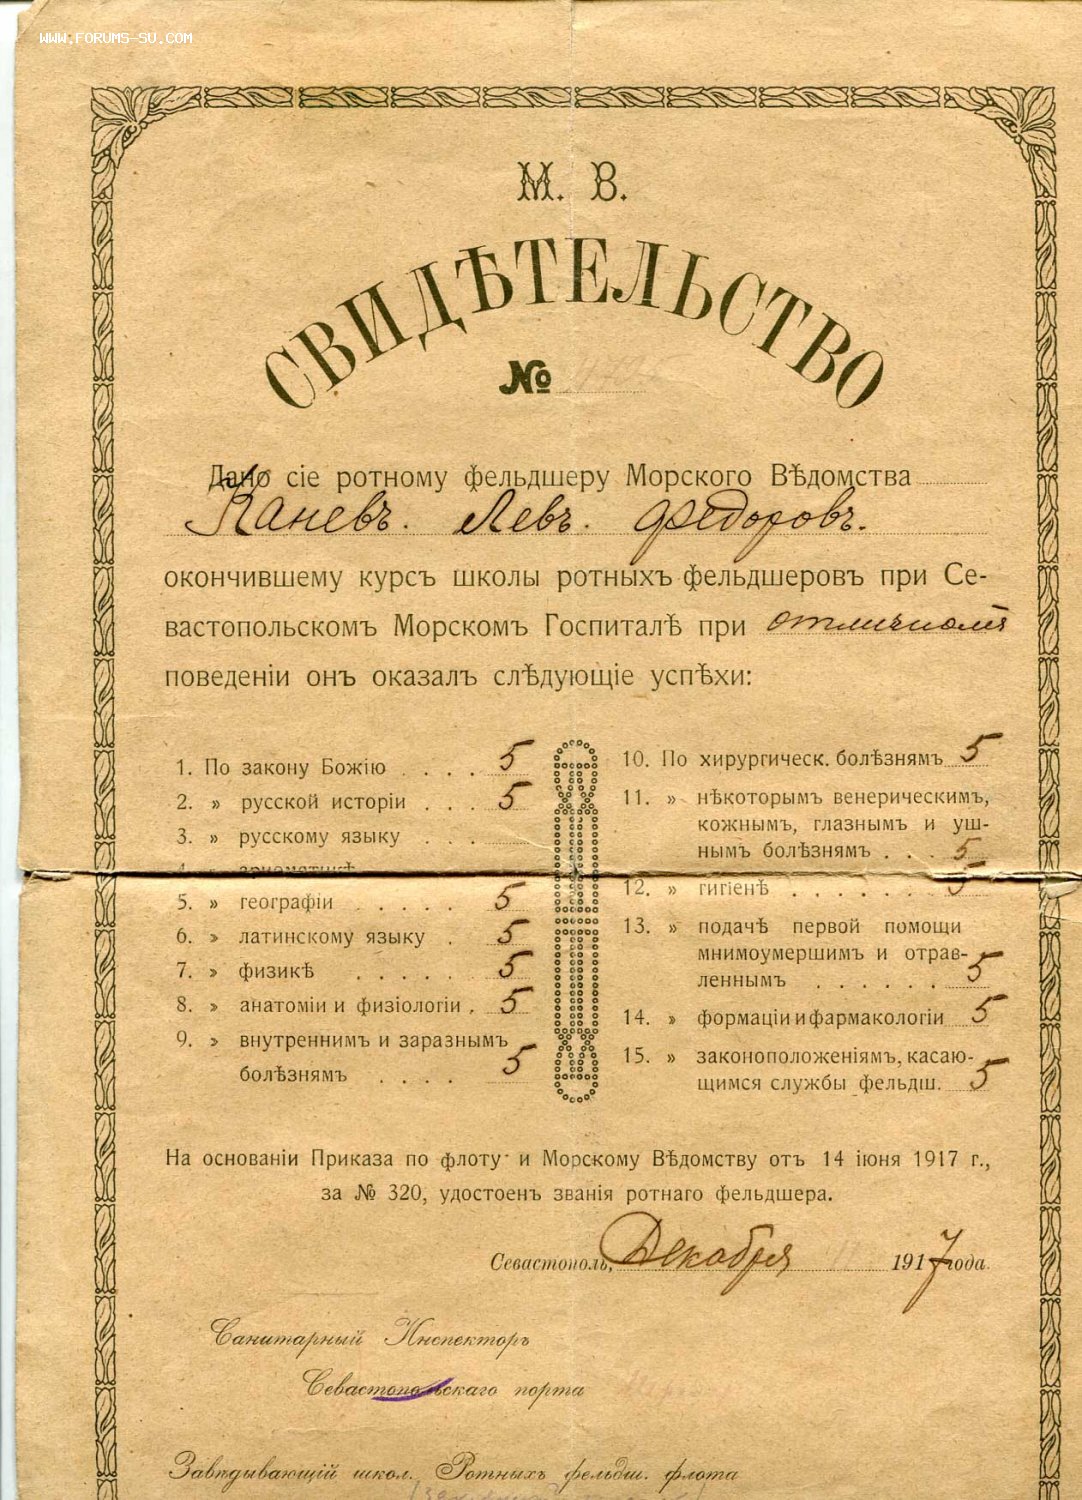 WWW.FORUMS-SU.COM
М. В.
СВИДѢТЕЛЬСТВО
№
Дано сіе ротному фельдшеру Морского Вѣдомства
Каневъ. Левъ. Федоровъ.
окончившему курсъ школы ротныхъ фельдшеровъ при Се-
вастопольскомъ Морскомъ Госпиталѣ при отличномъ
поведеніи онъ оказалъ слѣдующіе успѣхи:
1. По закону Божію . . . . 5
2. » русской исторіи . . . 5
3. » русскому языку . . .
4. ариѳметикѣ
5. » географіи . . . . . 5
6. » латинскому языку . 5
7. » физикѣ . . . . . 5
8. » анатоміи и физіологіи . 5
9. » внутреннимъ и заразнымъ
болѣзнямъ . . . . 5
10. По хирургическ. болѣзнямъ 5
11. » нѣкоторымъ венерическимъ,
кожнымъ, глазнымъ и уш-
нымъ болѣзнямъ . . . 5
12. » гигіенѣ . . . . . . . 5
13. » подачѣ первой помощи
мнимоумершимъ и отрав-
леннымъ . . . . . . 5
14. » формаціи и фармакологіи 5
15. » законоположеніямъ, касаю-
щимся службы фельдш. 5
На основаніи Приказа по флоту и Морскому Вѣдомству отъ 14 іюня 1917 г.,
за № 320, удостоенъ званія ротнаго фельдшера.
Севастополь, Декабря 1917 года
Санитарный Инспекторъ
Севастопольскаго порта
Завѣдывающій школ. Ротныхъ фельдш. флота